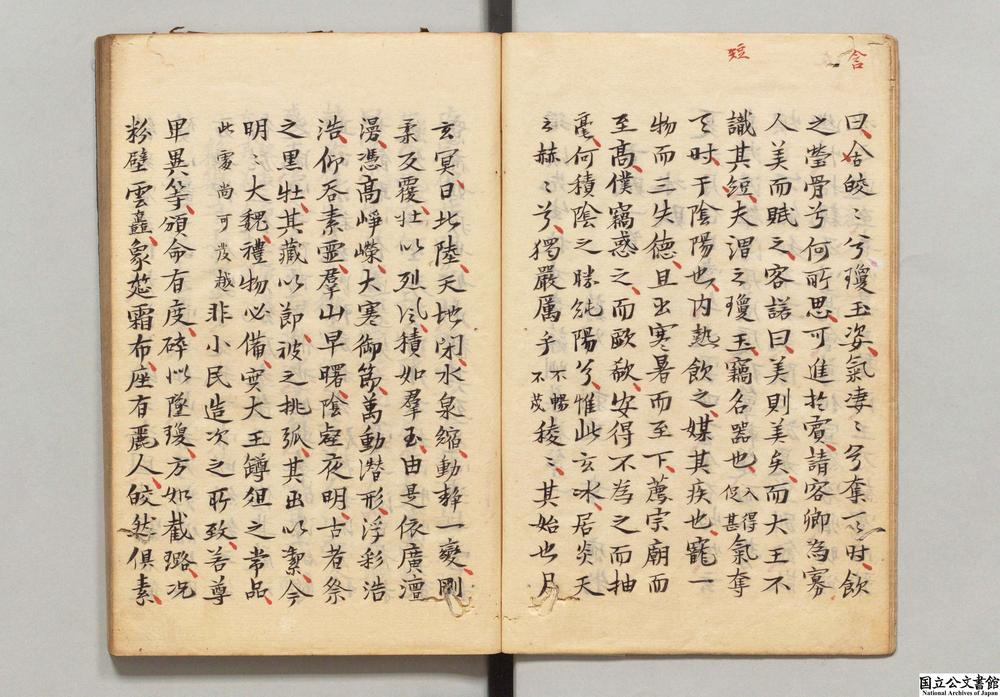 含
短
曰含皎〻兮瓊玉姿氣凄〻兮奪天時飲
之瑩骨兮何所思可進於賓請客卿為寡
人美而賦之客諾曰美則美矣而大王不
識其短夫謂之瓊玉竊名器也入得促甚氣奪
天時干陰陽也内熱飲之媒其疾也寵一
物而三失德且出寒暑而至下薦宗廟而
至髙僕竊惑之而歐欷安得不為之而抽
毫何積陰之勝純陽兮惟此玄氷居炎天
之赫〻兮獨嚴厲乎不暢不茂稜〻其始也月
玄冥日北陸天地閉水泉縮動静一變剛
柔反覆壮以烈風積如羣玉由是依廣澶
漫憑髙崢嶸大寒御節萬動潜形浮彩浩
浩仰吞素靈羣山早曙陰壑夜明古者祭
之黒牡其藏以節祓之挑弧其出以絜今
明〻大魏禮物必備寔大王罇俎之常品
此處尚可發越非小民造次之所致若尊
卑異等頒命有度碎以墜瓊方如截璐况
粉壁雲矗象筵霜布座有麗人皎然俱素
国立公文書館
National Archives of Japan